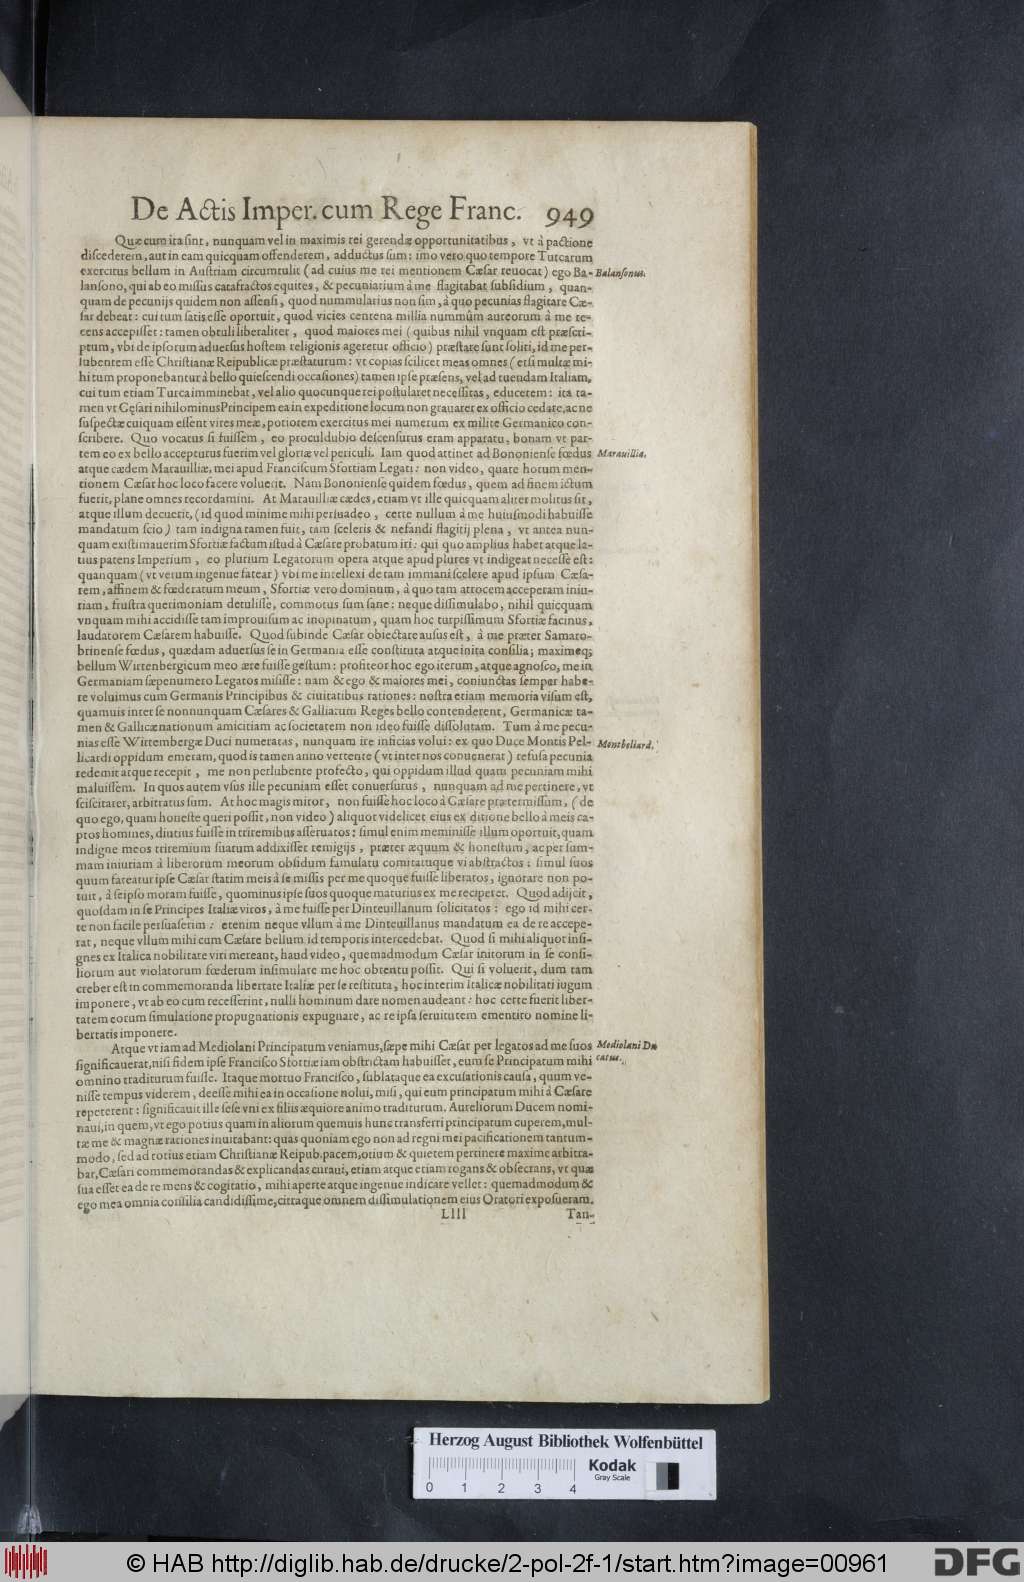 De Actis Imper. cum Rege Franc. 949
Quæ cum ita sint, nunquam vel in maximis rei gerendæ opportunitatibus, vt à pactione
discederem, aut in eam quicquam offenderem, adductus sum: imo vero quo tempore Turcarum
exercitus bellum in Austriam circumtulit (ad cuius me rei mentionem Cæsar reuocat) ego Ba-
Balansonus.
lansono, qui ab eo missus catafractos equites, & pecuniarium à me flagitabat subsidium, quan-
quam de pecunijs quidem non assensi, quod nummularius non sim, à quo pecunias flagitare Cæ-
sar debeat: cui tum satis esse oportuit, quod vicies centena millia nummûm aureorum à me re-
cens accepisset: tamen obtuli liberaliter, quod maiores mei (quibus nihil vnquam est præscri-
ptum, vbi de ipsorum aduersus hostem religionis ageretur officio) præstare sunt soliti, id me per-
lubentem esse Christianæ Reipublicæ præstaturum: vt copias scilicet meas omnes (etsi multæ mi-
hi tum proponebantur à bello quiescendi occasiones) tamen ipse præsens, vel ad tuendam Italiam,
cui tum etiam Turca imminebat, vel alio quocunque rei postularet necessitas, educerem: ita ta-
men vt Cęsari nihilominus Principem ea in expeditione locum non grauarer ex officio cedare, ac ne
suspectæ cuiquam essent vires meæ, potiorem exercitus mei numerum ex milite Germanico con-
scribere. Quo vocatus si fuissem, eo proculdubio descensurus eram apparatu, bonam vt par-
tem eo ex bello accepturus fuerim vel gloriæ vel periculi. Iam quod attinet ad Bononiense fœdus
Marauillia.
atque cædem Marauilliæ, mei apud Franciscum Sfortiam Legati: non video, quare horum men-
tionem Cæsar hoc loco facere voluerit. Nam Bononiense quidem fœdus, quem ad finem ictum
fuerit, plane omnes recordamini. At Marauilliæ cædes, etiam vt ille quicquam aliter molitus sit,
atque illum decuerit, (id quod minime mihi persuadeo, certe nullum à me huiusmodi habuisse
mandatum scio) tam indigna tamen fuit, tam sceleris & nefandi flagitij plena, vt antea nun-
quam existimauerim Sfortiæ factum istud à Cæsare probatum iri: qui quo amplius habet atque la-
tius patens Imperium, eo plurium Legatorum opera atque apud plures vt indigeat necesse est:
quanquam (vt verum ingenue fatear) vbi me intellexi de tam immani scelere apud ipsum Cæsa-
rem, affinem & fœderatum meum, Sfortiæ vero dominum, à quo tam atrocem acceperam iniu-
riam, frustra querimoniam detulisse, commotus sum sane: neque dissimulabo, nihil quicquam
vnquam mihi accidisse tam improuisum ac inopinatum, quam hoc turpissimum Sfortiæ facinus,
laudatorem Cæsarem habuisse. Quod subinde Cæsar obiectare ausus est, à me præter Samaro-
brinense fœdus, quædam aduersus se in Germania esse constituta atque inita consilia; maximeq;
bellum Wirtenbergicum meo ære fuisse gestum: profiteor hoc ego iterum, atque agnosco, me in
Germaniam sæpenumero Legatos misisse: nam & ego & maiores mei, coniunctas semper habe-
re voluimus cum Germanis Principibus & ciuitatibus rationes: nostra etiam memoria visum est,
quamuis inter se nonnunquam Cæsares & Galliarum Reges bello contenderent, Germanicæ ta-
men & Gallicæ nationum amicitiam ac societatem non ideo fuisse dissolutam. Tum à me pecu-
nias esse Wirtembergæ Duci numeratas, nunquam ire inficias volui: ex quo Duce Montis Pel-
Montbeliard.
licardi oppidum emeram, quod is tamen anno vertente (vt inter nos conuenerat) refusa pecunia
redemit atque recepit, me non perlubente profecto, qui oppidum illud quam pecuniam mihi
maluissem. In quos autem vsus ille pecuniam esset conuersurus, nunquam ad me pertinere, vt
sciscitarer, arbitratus sum. At hoc magis miror, non fuisse hoc loco à Cæsare prætermissum, (de
quo ego, quam honeste queri possit, non video) aliquot videlicet eius ex ditione bello à meis ca-
ptos homines, diutius fuisse in triremibus asseruatos: simul enim meminisse illum oportuit, quam
indigne meos triremium suarum addixisset remigijs, præter æquum & honestum, ac per sum-
mam iniuriam à liberorum meorum obsidum famulatu comitatuque vi abstractos: simul suos
quum fateatur ipse Cæsar statim meis à se missis per me quoque fuisse liberatos, ignorare non po-
tuit, à seipso moram fuisse, quominus ipse suos quoque maturius ex me reciperet. Quod adijcit,
quosdam in se Principes Italiæ viros, à me fuisse per Dinteuillanum solicitatos: ego id mihi cer-
te non facile persuaserim: etenim neque vllum à me Dinteuillanus mandatum ea de re accepe-
rat, neque vllum mihi cum Cæsare bellum id temporis intercedebat. Quod si mihi aliquot insi-
gnes ex Italica nobilitate viri mereant, haud video, quemadmodum Cæsar initorum in se consi-
liorum aut violatorum fœderum insimulare me hoc obtentu possit. Qui si voluerit, dum tam
creber est in commemoranda libertate Italiæ per se restituta, hoc interim Italicæ nobilitati iugum
imponere, vt ab eo cum recesserint, nulli hominum dare nomen audeant: hoc certe fuerit liber-
tatem eorum simulatione propugnationis expugnare, ac re ipsa seruitutem ementito nomine li-
bertatis imponere.
Atque vt iam ad Mediolani Principatum veniamus, sæpe mihi Cæsar per legatos ad me suos
Mediolani Du
catus.
significauerat, nisi fidem ipse Francisco Sfortiæ iam obstrictam habuisset, eum se Principatum mihi
omnino traditurum fuisse. Itaque mortuo Francisco, sublataque ea excusationis causa, quum ve-
nisse tempus viderem, deesse mihi ea in occasione nolui, misi, qui eum principatum mihi à Cæsare
repeterent: significauit ille sese vni ex filiis æquiore animo traditurum. Aureliorum Ducem nomi-
naui, in quem, vt ego potius quam in aliorum quemuis hunc transferri principatum cuperem, mul-
tæ me & magnæ rationes inuitabant: quas quoniam ego non ad regni mei pacificationem tantum-
modo, sed ad totius etiam Christianæ Reipub. pacem, otium & quietem pertinere maxime arbitra-
bar, Cæsari commemorandas & explicandas curaui, etiam atque etiam rogans & obsecrans, vt quæ
sua esset ea de re mens & cogitatio, mihi aperte atque ingenue indicare vellet: quemadmodum &
ego mea omnia consilia candidissime, citraque omnem dissimulationem eius Oratori exposueram.
LIII Tan-
Herzog August Bibliothek Wolfenbüttel
Kodak
Gray Scale
0 1 2 3 4
© HAB http://diglib.hab.de/drucke/2-pol-2f-1/start.htm?image=00961
DFG